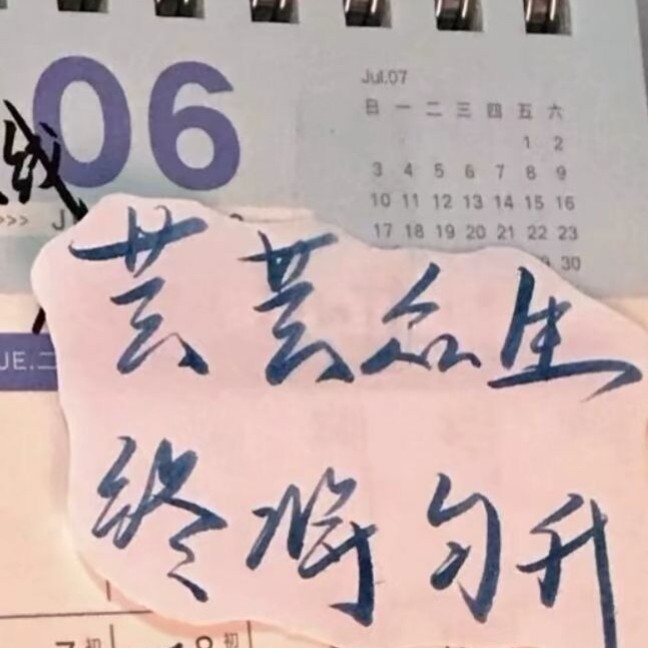 06
Jul.07
日 一 二 三 四 五 六
1 2
3 4 5 6 7 8 9
10 11 12 13 14 15 16
17 18 19 20 21 22 23
30
线
>>> J
UE.二
芸芸众生
终将匀升
7 初
8 初